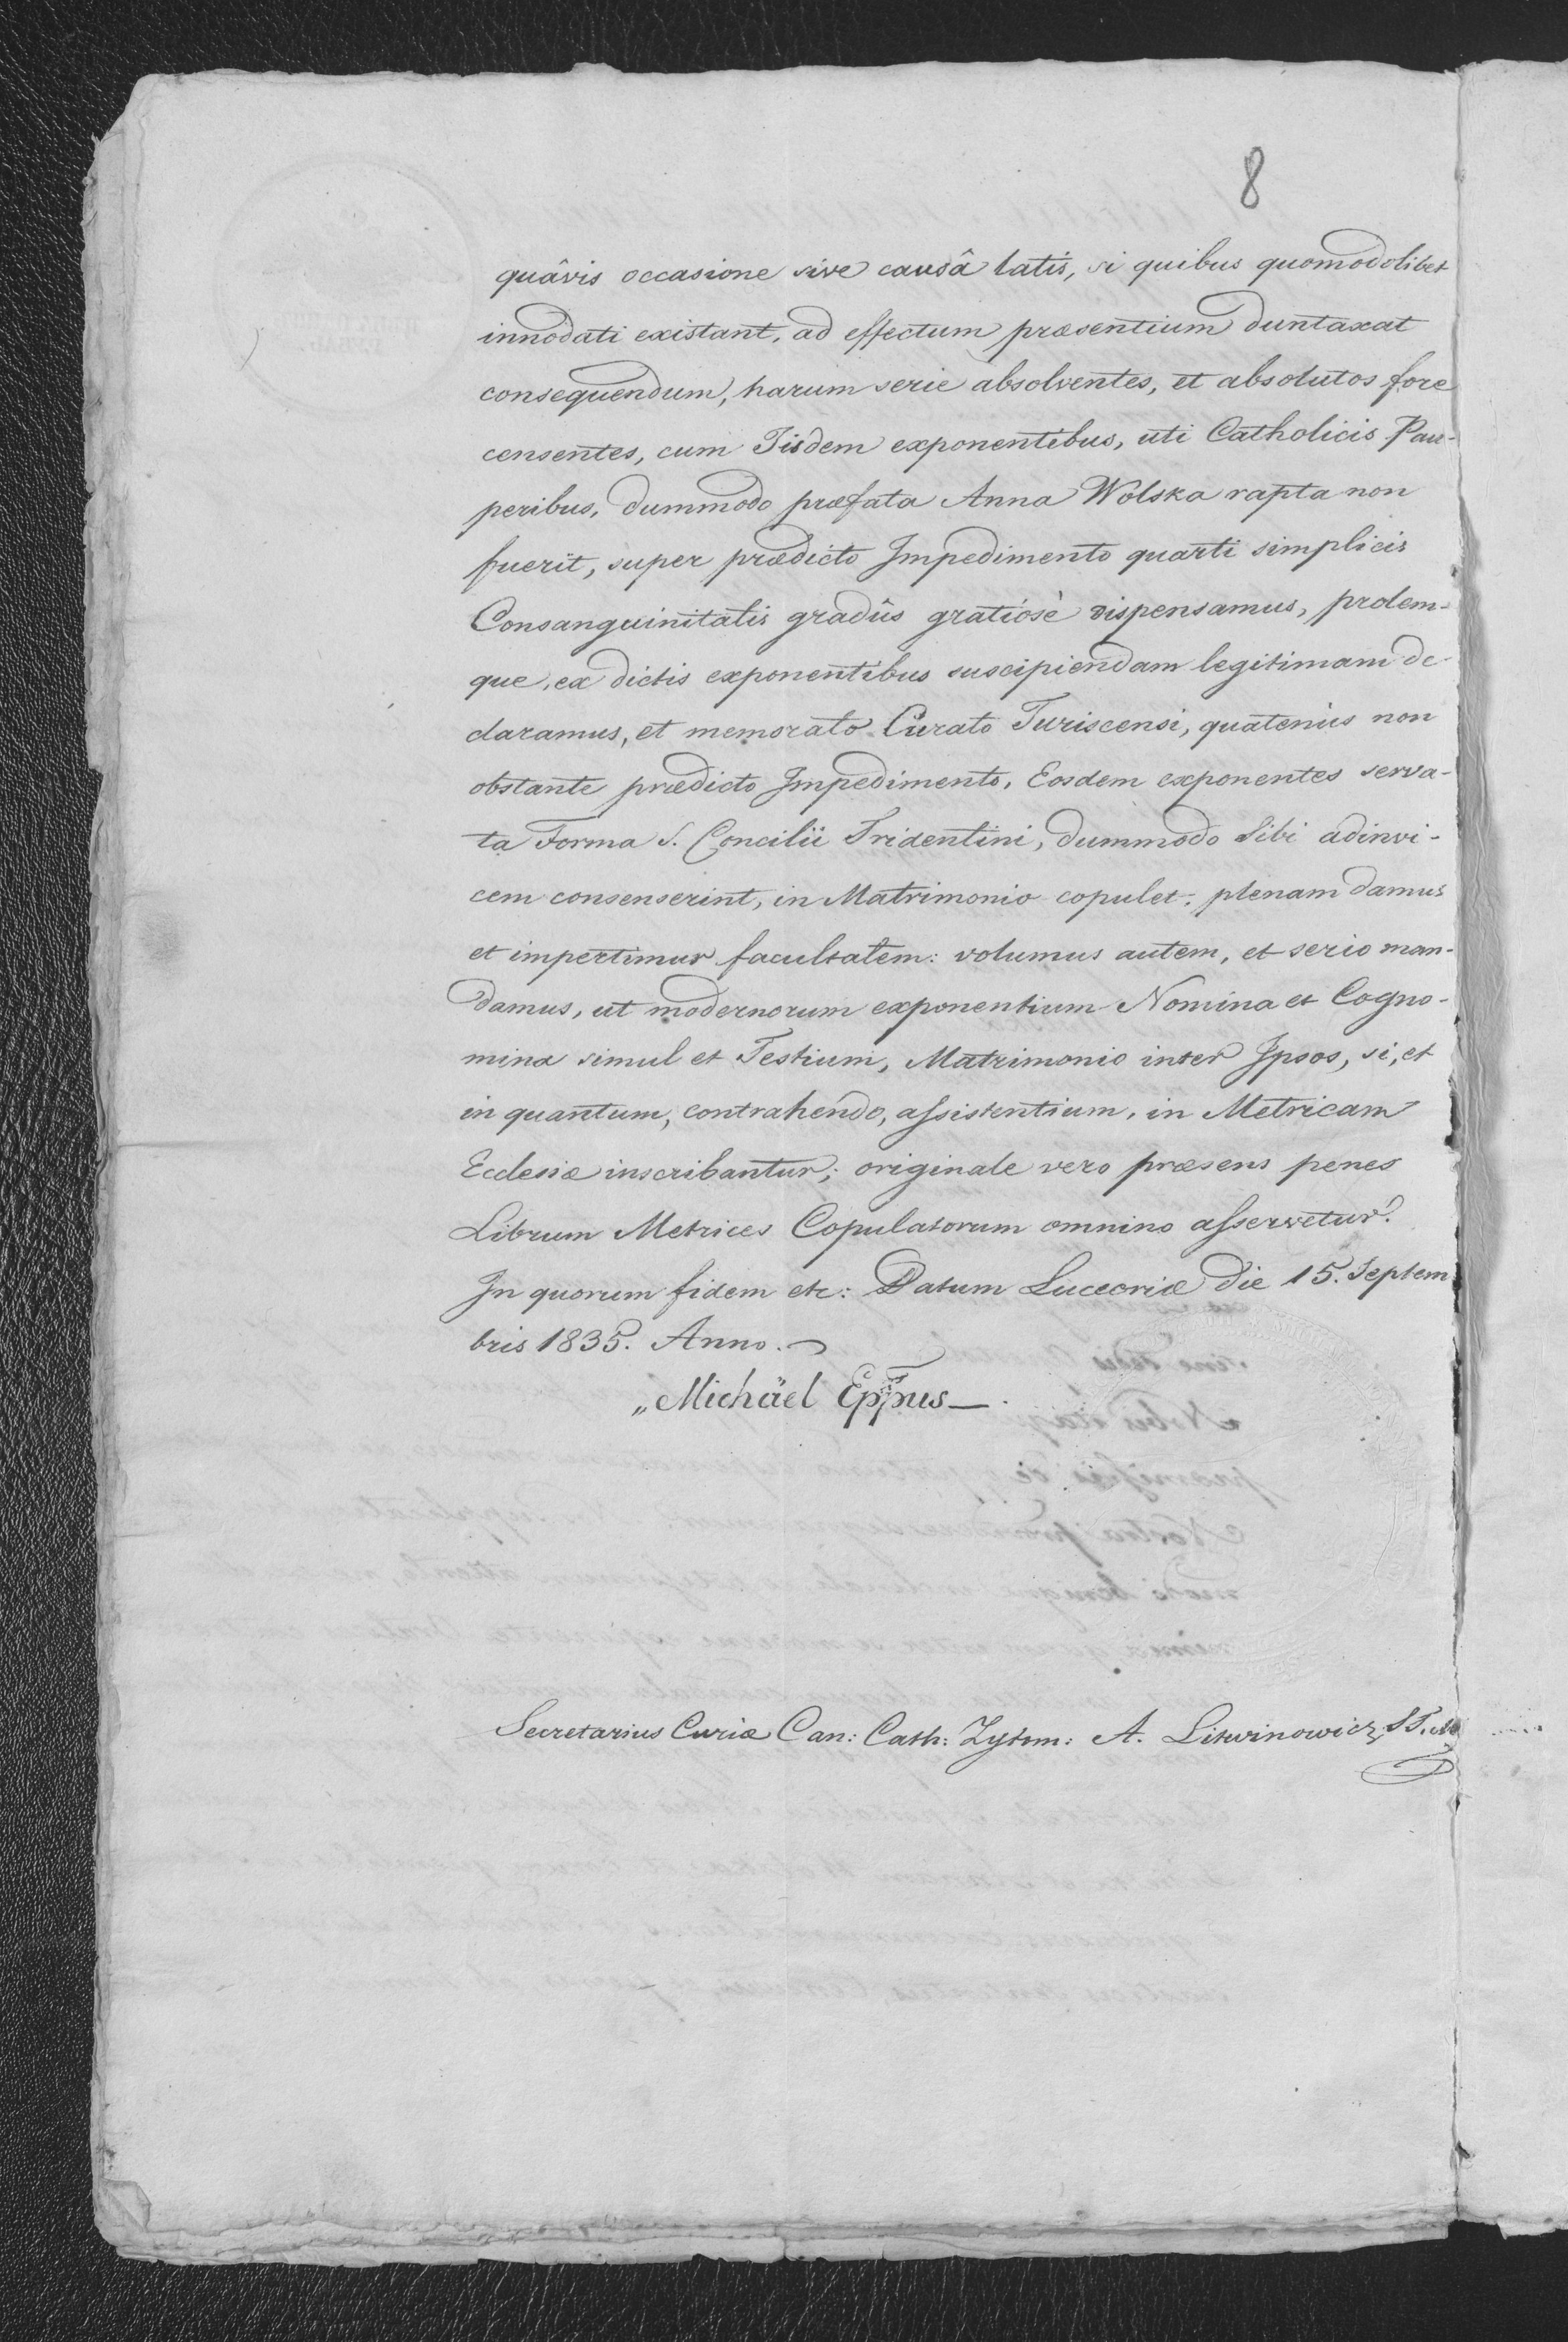 8
quâvis occasione sive causâ latis, si quibus quomodolibet
innodati existant, ad effectum præsentium duntaxat
consequendum, harum serie absolventes, et absolutos fore
censentes, cum Iisdem exponentibus, uti Catholicis Pau-
peribus, dummodo præfata Anna Wolska rapta non
fuerit, super prædicto Impedimento quarti simplicis
Consanguinitatis gradûs gratiosè dispensamus, prolem-
que, ex dictis exponentibus suscipiendam legitimam de-
claramus, et memorato Curato Turiscensi, quatenus non
obstante prædicto Impedimento, Eosdem exponentes serva-
ta Forma S. Concilii Tridentini, dummodo Sibi adinvi-
cem consenserint, in Matrimonio copulet; plenam damus
et impertimur facultatem: volumus autem, et serio man-
damus, ut modernorum exponentium Nomina et Cogno-
mina simul et Testium, Matrimonio inter Ipsos, si, et
in quantum, contrahendo, assistentium, in Metricam
Ecclesiæ inscribantur; originale vero præsens penes
Librum Metrices Copulatorum omnino asservetur.
In quorum fidem etc: Datum Luceoriæ Die 15. Septem
bris 1835. Anno.
„Michäel Eppus—.
Secretarius Curiæ Can: Cath: Zytom: A. Litwinowicz